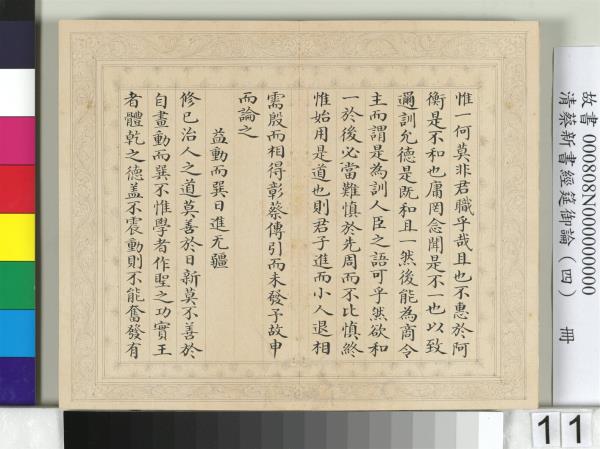 惟一何莫非君職乎哉且也不惠於阿
衡是不和也庸罔念聞是不一也以致
邇訓允德是既和且一然後能為商令
主而謂是為訓人臣之語可乎然欲和
一於後必當難慎於先周而不比慎終
惟始用是道也則君子進而小人退相
需殷而相得彰蔡傳引而未發予故申
而論之
益動而巽日進无疆
修己治人之道莫善於日新莫不善於
自畫動而巽不惟學者作聖之功實王
者體乾之德蓋不震動則不能奮發有
故書 000808N000000000
清蔡新書經筵御論（四） 冊
11